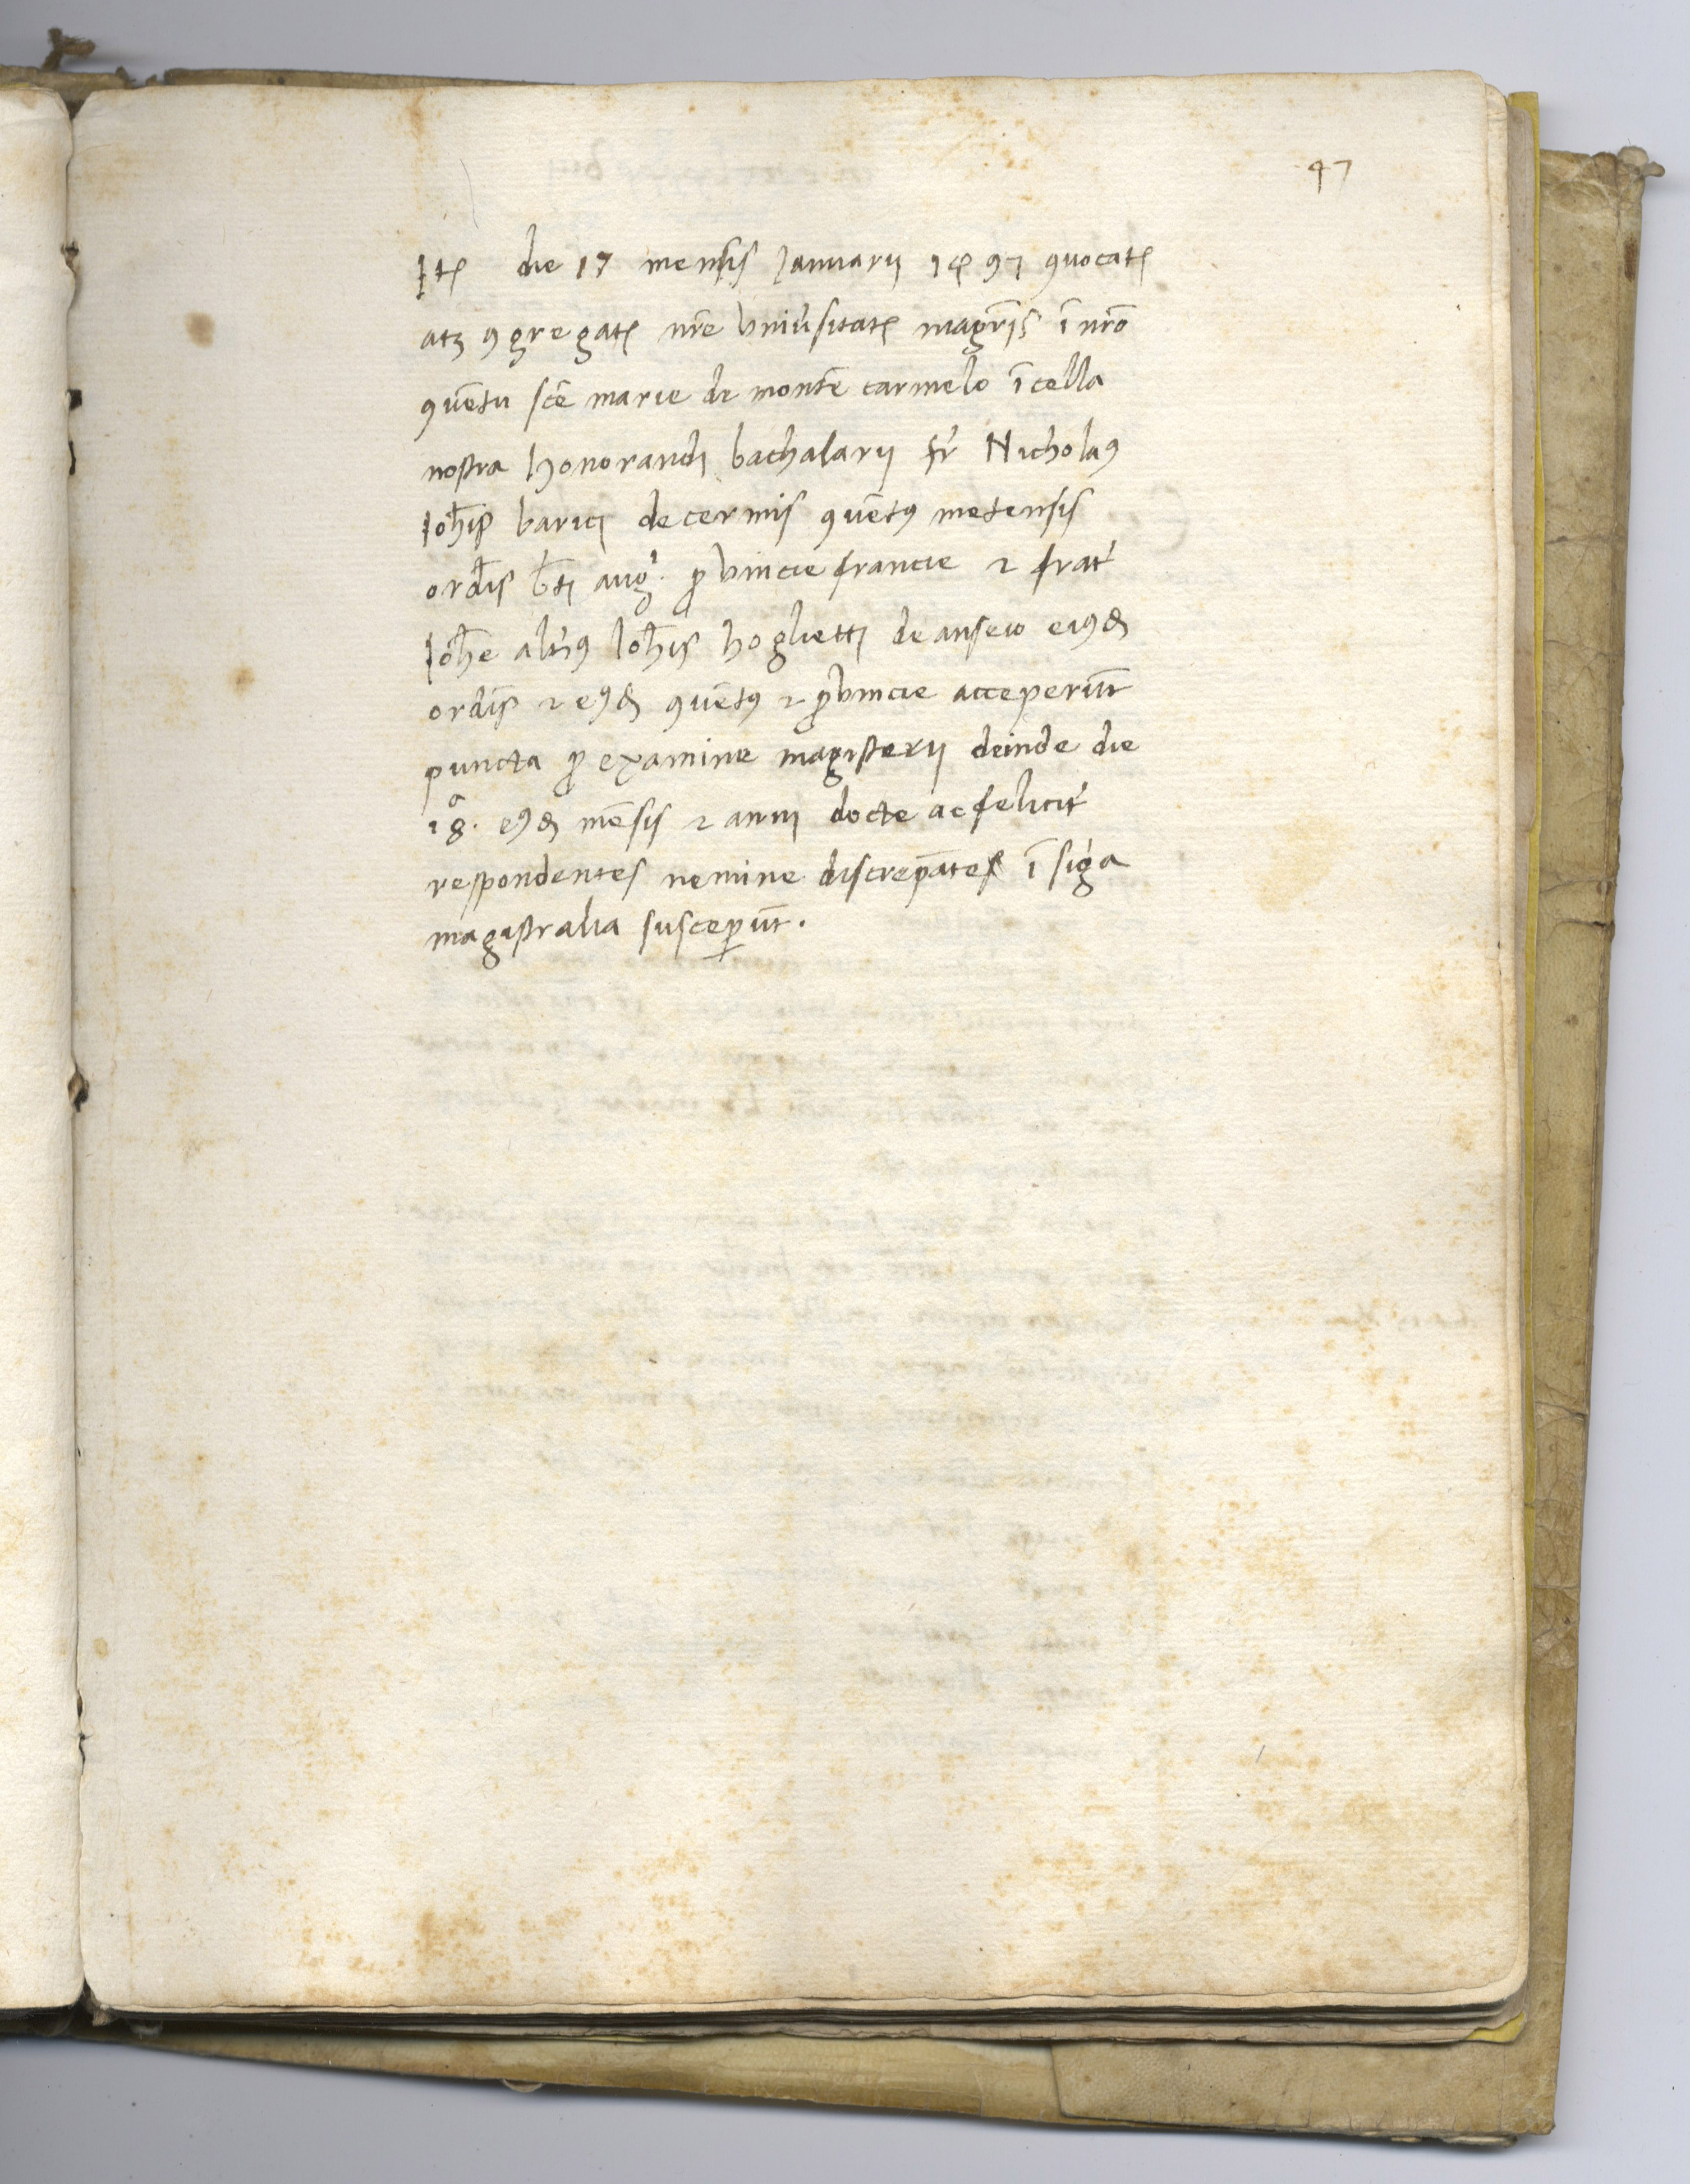 47
Itꝭ die 17 mensis Januarij 1497 ꝯuocatꝭ
atꝫ ꝯgregatꝭ nr̄e vniu̓sitatꝭ magr̄is ī nr̄o
ꝯuētu scē marie de montē carmelo ī cella
nostra honorandj bachalarij fr̓ Nicholaꝯ
Joh̄is baricj de cermis ꝯuētꝯ metensis
ord̄is b̄tj aug.̓ ꝓvincie francie ⁊ frat̓
Joh̄e alt̓iꝯ Joh̄is hogliettj de anseio eiꝯd̄
ordīs ⁊ eꝯd̄ ꝯuētꝯ ⁊ ꝓvincie acceperūt
puncta ꝓ examine magisterij deinde die
18ᵃ. eꝯd̄ mēsis ⁊ annj docte ac felicit̓
respondentes nemine discrepāte ī sig̓a
magistralia susceꝑūt.